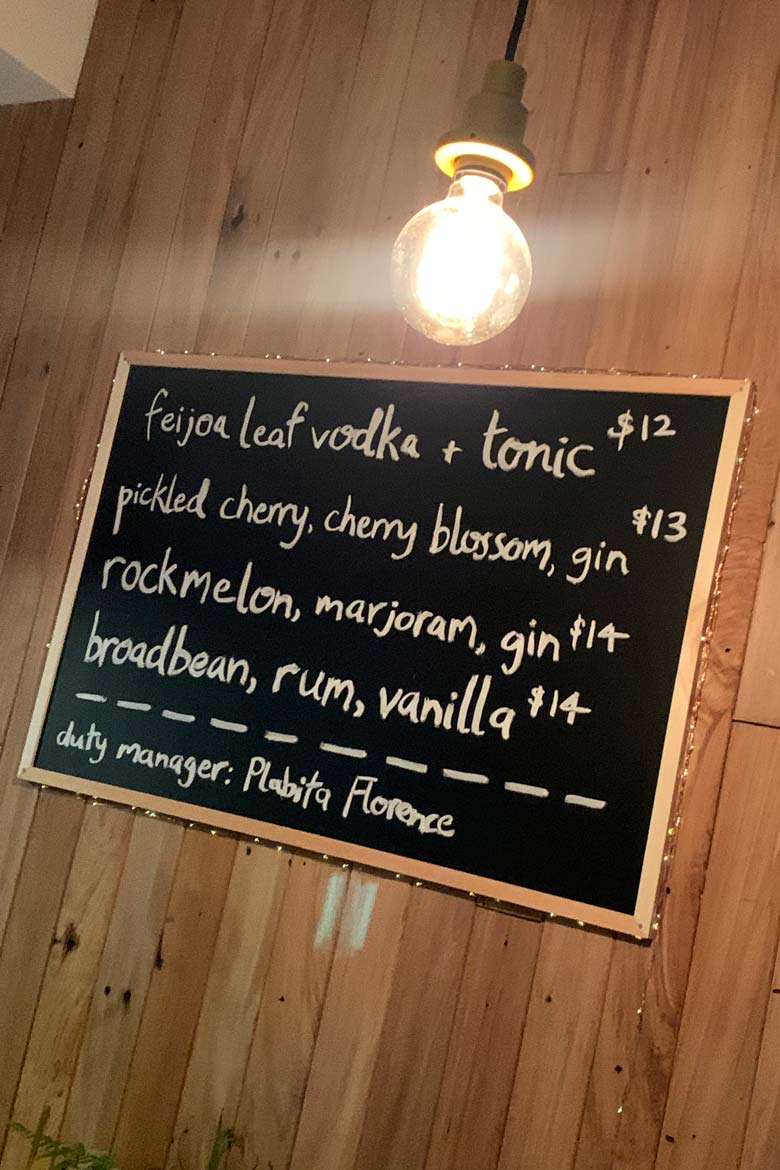 feijoa leaf vodka + tonic $12
pickled cherry, cherry blossom, gin $13
rockmelon, marjoram, gin $14
broadbean, rum, vanilla $14
duty manager: Plabita Florence